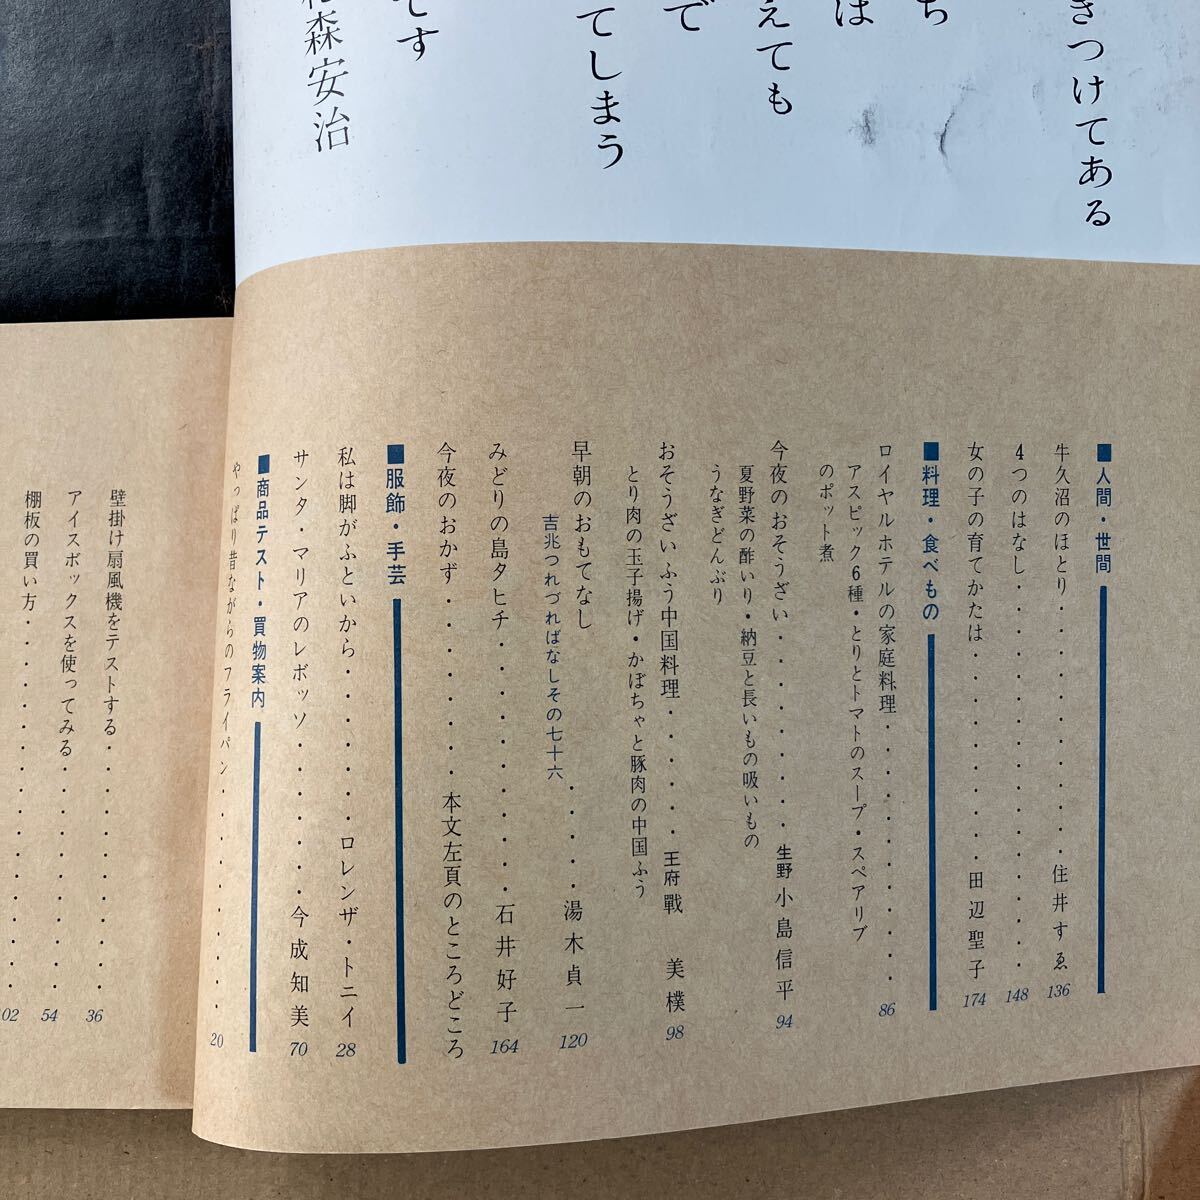 きつけてある
ち
は
えても
で
てしまう
です
森安治
■人間・世間
牛久沼のほとり・・・・・・・・・・住井すゑ 136
4つのはなし・・・・・・・・・・・・・・・・・148
女の子の育てかたは・・・・・・・・・田辺聖子 174
■料理・食べもの
ロイヤルホテルの家庭料理・・・・・・・・・・・86
アスピック6種・とりとトマトのスープ・スペアリブ
のポット煮
今夜のおそうざい・・・・・・・・・生野 小島信平 94
夏野菜の酢いり・納豆と長いもの吸いもの
うなぎどんぶり
おそうざいふう中国料理・・・・・・王府 戰 美樸 98
とり肉の玉子揚げ・かぼちゃと豚肉の中国ふう
早朝のおもてなし
吉兆つれづればなしその七十六・・・・・湯木貞一 120
みどりの島タヒチ・・・・・・・・・・石井好子 164
今夜のおかず・・・・・・・本文左頁のところどころ
■服飾・手芸
私は脚がふといから・・・・・・ロレンザ・トニイ 28
サンタ・マリアのレボッソ・・・・・・今成知美 70
■商品テスト・買物案内
やっぱり昔ながらのフライパン・・・・・・・・・20
壁掛け扇風機をテストする・・・・・・・・・・・36
アイスボックスを使ってみる・・・・・・・・・・54
棚板の買い方・・・・・・・・・・・・・・・・・02